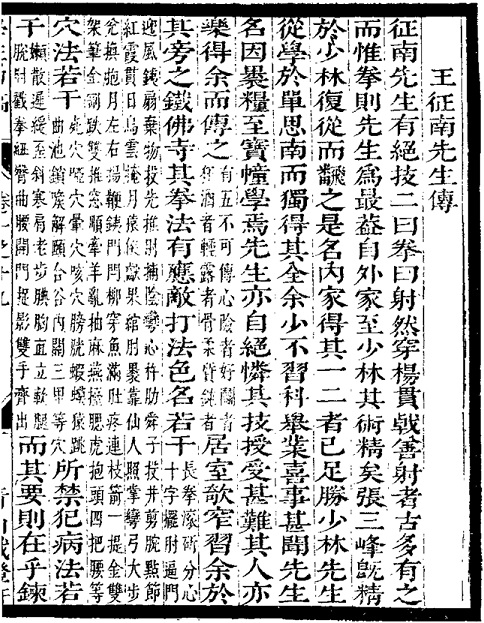 王征南先生傳
征南先生有絕技二曰拳曰射然穿楊貫戟善射者古多有之
而惟拳則先生爲最葢自外家至少林其術精矣張三峰旣精
於少林復從而翻之是名內家得其一二者已足勝少林先生
從學於單思南而獨得其全余少不習科舉業喜事甚聞先生
名因裹糧至寶幢學焉先生亦自絕憐其技授受甚難其人亦
樂得余而傳之有五不可傳心險者好鬬者狂酒者輕露者骨柔質鈍者居室欹窄習余於
其旁之鐵佛寺其拳法有應敵打法色名若干長拳滾斫分心十字擺肘逼門
迎風鐵扇棄物投先推肘捕陰彎心杵肋舜子投井剪腕點節
紅霞貫日烏雲掩月猿猴獻果綰肘裹靠仙人照掌彎弓大步
兌換抱月左右揚鞭鐵門閂柳穿魚滿肚疼連枝箭一提金雙
架筆金剛跌雙推窗順牽羊亂抽麻燕擡腮虎抱頭四把腰等
穴法若干死穴啞穴暈穴咳穴膀胱蝦蟆猿跳曲池鎖喉解頤合谷內關三里等穴所禁犯病法若
干懶散遲緩歪斜寒肩老步腆胸直立軟腿脫肘戳拳紐臀曲腰開門捉影雙手齊出而其要則在乎鍊